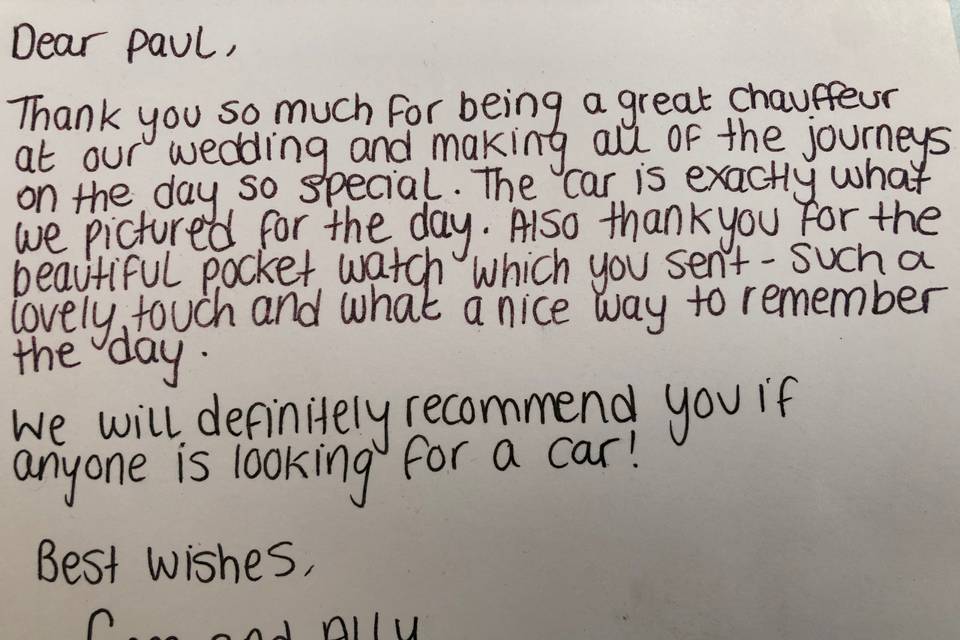 Dear Paul,
Thank you so much for being a great chauffeur
at our wedding and making all of the journeys
on the day so special. The car is exactly what
we pictured for the day. Also thank you for the
beautiful pocket watch which you sent - such a
lovely touch and what a nice way to remember
the day.
We will definitely recommend you if
anyone is looking for a car!
Best wishes,
and Ally